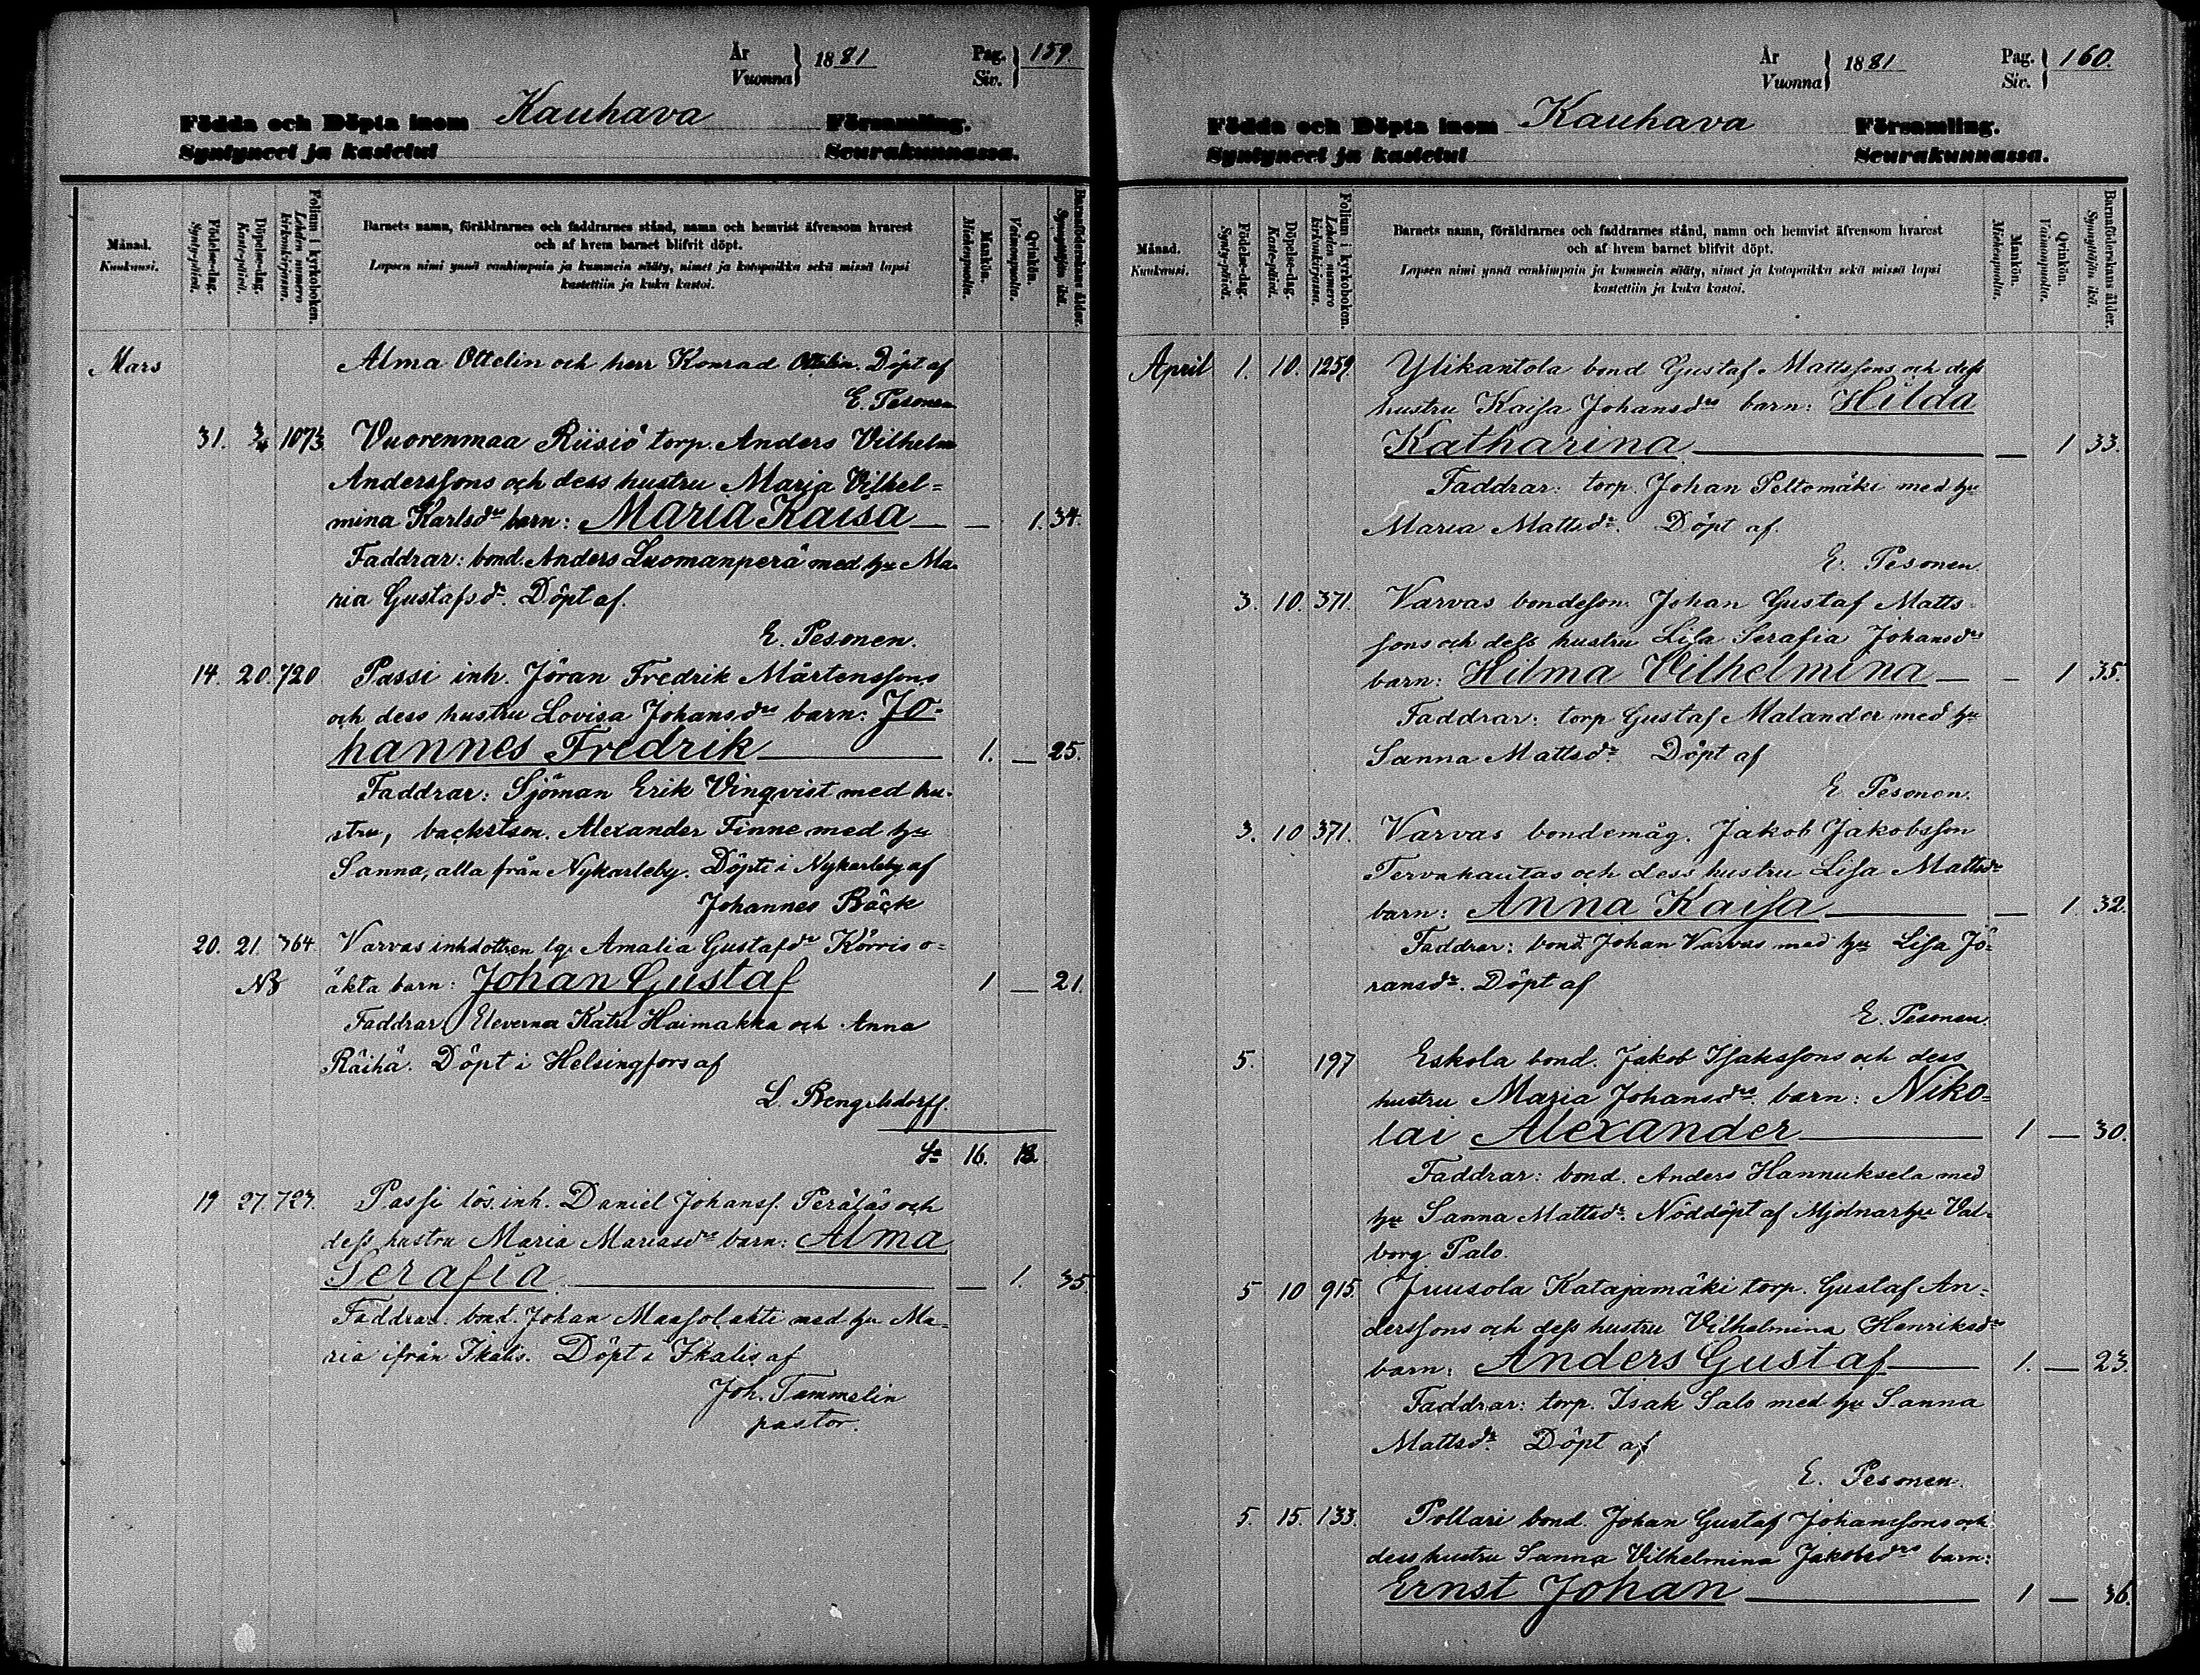 År
Vuonna } 1881
Pag.
Siv. } 159.
Födda och Döpta inom Kauhava Församling.
Syntyneet ja kastetut Seurakunnassa.
Månad.
Kuukausi.
Födelse-dag.
Synty-päivä.
Döpelse-dag.
Kaste-päivä.
Folium i kyrkoboken.
Lehden numero kirkonkirjassa.
Barnets namn, föräldrarnes och faddrarnes stånd, namn och hemvist äfvensom hvarest
och af hvem barnet blifvit döpt.
Lapsen nimi ynnä vanhimpain ja kummein sääty, nimet ja kotopaikka sekä missä lapsi
kastettiin ja kuka kastoi.
Mankön.
Miehenpuolta.
Qvinkön.
Vaimonpuolta.
Barnaföderskans ålder.
Synnyttäjän ikä.
Mars Alma Ottelin och herr Konrad Ottelin. Döpt af
E. Pesonen
31. 3/4 1073 Vuorenmaa Riisiö torp. Anders Vilhelm
Anderssons och dess hustru Maria Vilhel=
mina Karlsdrs barn: Maria Kaisa — — 1. 34.
Faddrar: bond. Anders Luomanperä med hu Ma-
ria Gustafsdr. Döpt af.
E. Pesonen.
14. 20. 720. Passi inh. Jöran Fredrik Mårtenssons
och dess hustru Lovisa Johansdrs barn: Jo=
hannes Fredrik — 1. — 25.
Faddrar: Sjöman Erik Vinqvist med hu-
stru, backstsm. Alexander Finne med hu
Sanna, alla från Nykarleby. Döpt i Nykarleby af
Johannes Bäck
20. 21. 364. Varvas inhdottren lg. Amalia Gustafsdr Körris o=
äkta barn: Johan Gustaf 1 — 21.
Faddrar Eleverna Katri Haimakka och Anna
Räihä. Döpt i Helsingfors af
L. Bengelsdorff.
Sa 16. 13.
19 27. 723. Passi lös. inh. Daniel Johanss. Peräläs och
dess hustru Maria Mariasdrs barn: Alma
Serafia — — 1. 35.
Faddrar: bond. Johan Maasolahti med hu Ma-
ria ifrån Ikalis. Döpt i Ikalis af
Joh. Tammelin
pastor.
År
Vuonna } 1881
Pag.
Siv. } 160.
Födda och Döpta inom Kauhava Församling.
Syntyneet ja kastetut Seurakunnassa.
Månad.
Kuukausi.
Födelse-dag.
Synty-päivä.
Döpelse-dag.
Kaste-päivä.
Folium i kyrkoboken.
Lehden numero kirkonkirjassa.
Barnets namn, föräldrarnes och faddrarnes stånd, namn och hemvist äfvensom hvarest
och af hvem barnet blifvit döpt.
Lapsen nimi ynnä vanhimpain ja kummein sääty, nimet ja kotopaikka sekä missä lapsi
kastettiin ja kuka kastoi.
Mankön.
Miehenpuolta.
Qvinkön.
Vaimonpuolta.
Barnaföderskans ålder.
Synnyttäjän ikä.
April 1. 10. 1259. Ylikantola bond Gustaf Mattssons och dess
hustru Kaisa Johansdrs barn: Hilda
Katharina — — 1 33.
Faddrar: torp. Johan Peltomäki med hu
Maria Mattsdr. Döpt af.
E. Pesonen.
3. 10. 371. Varvas bondeson Johan Gustaf Matts
sons och dess hustru Lisa Serafia Johansdrs
barn: Hilma Vilhelmina — — 1 35.
Faddrar: torp Gustaf Malander med hu
Sanna Mattsdr. Döpt af
E. Pesonen.
3. 10 371. Varvas bondemåg. Jakob Jakobsson
Tervahautas och dess hustru Lisa Mattsdrs
barn: Anna Kaisa — — 1 32.
Faddrar: bond. Johan Varvas med hu Lisa Jö-
ransdr. Döpt af
E. Pesonen.
5. 197 Eskola bond. Jakob Isakssons och dess
hustru Maria Johansdrs barn: Niko=
lai Alexander — 1 — 30.
Faddrar: bond. Anders Hannuksela med
hu Sanna Mattsdr. Nöddöpt af Mjölnarhu Val-
borg Palo.
5 10 915. Juusola Katajamäki torp. Gustaf An-
derssons och dess hustru Vilhelmina Henriksdrs
barn: Anders Gustaf — 1. — 23.
Faddrar: torp. Isak Salo med hu Sanna
Mattsdr. Döpt af
E. Pesonen.
5. 15. 133. Pollari bond. Johan Gustaf Johanssons och
dess hustru Sanna Vilhelmina Jakobsdrs barn:
Ernst Johan — 1 — 36.